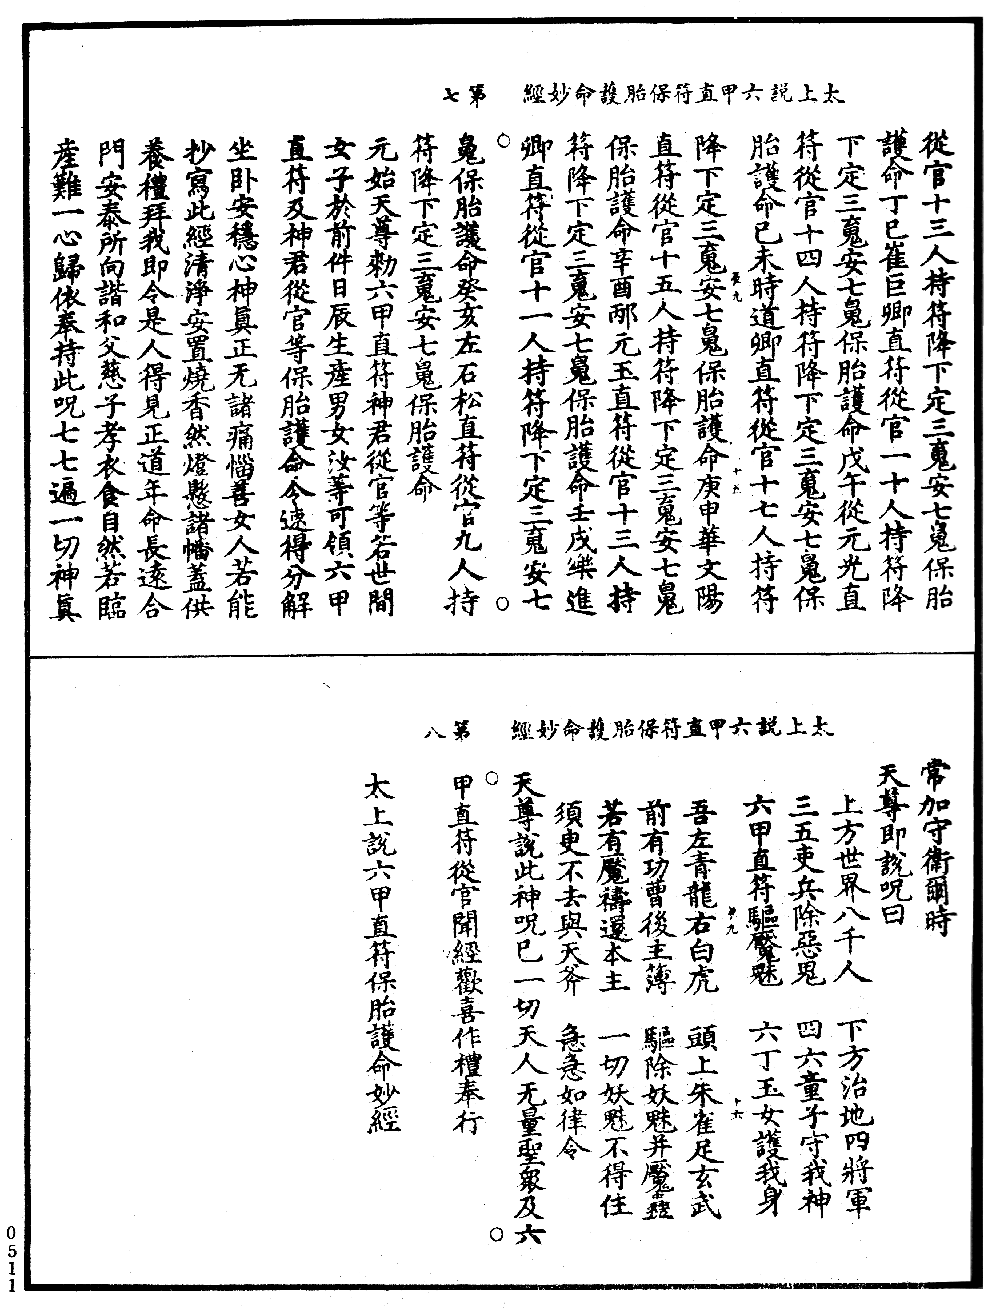 太上說六甲直符保胎護命妙經　第七
從官十三人持符降下定三䰟安七䰟保胎
護命丁巳崔巨卿直符從官一十人持符降
下定三䰟安七䰟保胎護命戊午從元光直
符從官十四人持符降下定三䰟安七䰟保
胎護命己未時道卿直符從官十七人持符
降下定三䰟安七䰟保胎護命庚申華文陽
直符從官十五人持符降下定三䰟安七䰟
保胎護命辛酉邴元玉直符從官十三人持
符降下定三䰟安七䰟保胎護命壬戌樂進
卿直符從官十一人持符降下定三䰟安七
䰟保胎護命癸亥左石松直符從官九人持
符降下定三䰟安七䰟保胎護命
元始天尊勑六甲直符神君從官等若世間
女子於前件日辰生產男女汝等可領六甲
直符及神君從官等保胎護命令速得分解
坐卧安穩心神真正无諸痛惱善女人若能
抄寫此經清淨安置燒香然燈懸諸幡蓋供
養禮拜我即令是人得見正道年命長遠合
門安泰所向諧和父慈子孝衣食自然若臨
產難一心歸依奉持此呪七七遍一切神真
太上說六甲直符保胎護命妙經　第八
常加守衛爾時
天尊即說呪曰
上方世界八千人　下方治地四將軍
三五吏兵除惡鬼　四六童子守我神
六甲直符驅魔魅　六丁玉女護我身
吾左青龍右白虎　頭上朱雀足玄武
前有功曹後主簿　驅除妖魅并魘蠱
若有魘禱還本主　一切妖魅不得住
須臾不去與天斧　急急如律令
天尊說此神呪已一切天人无量聖眾及六
甲直符從官聞經歡喜作禮奉行
太上說六甲直符保胎護命妙經
0511